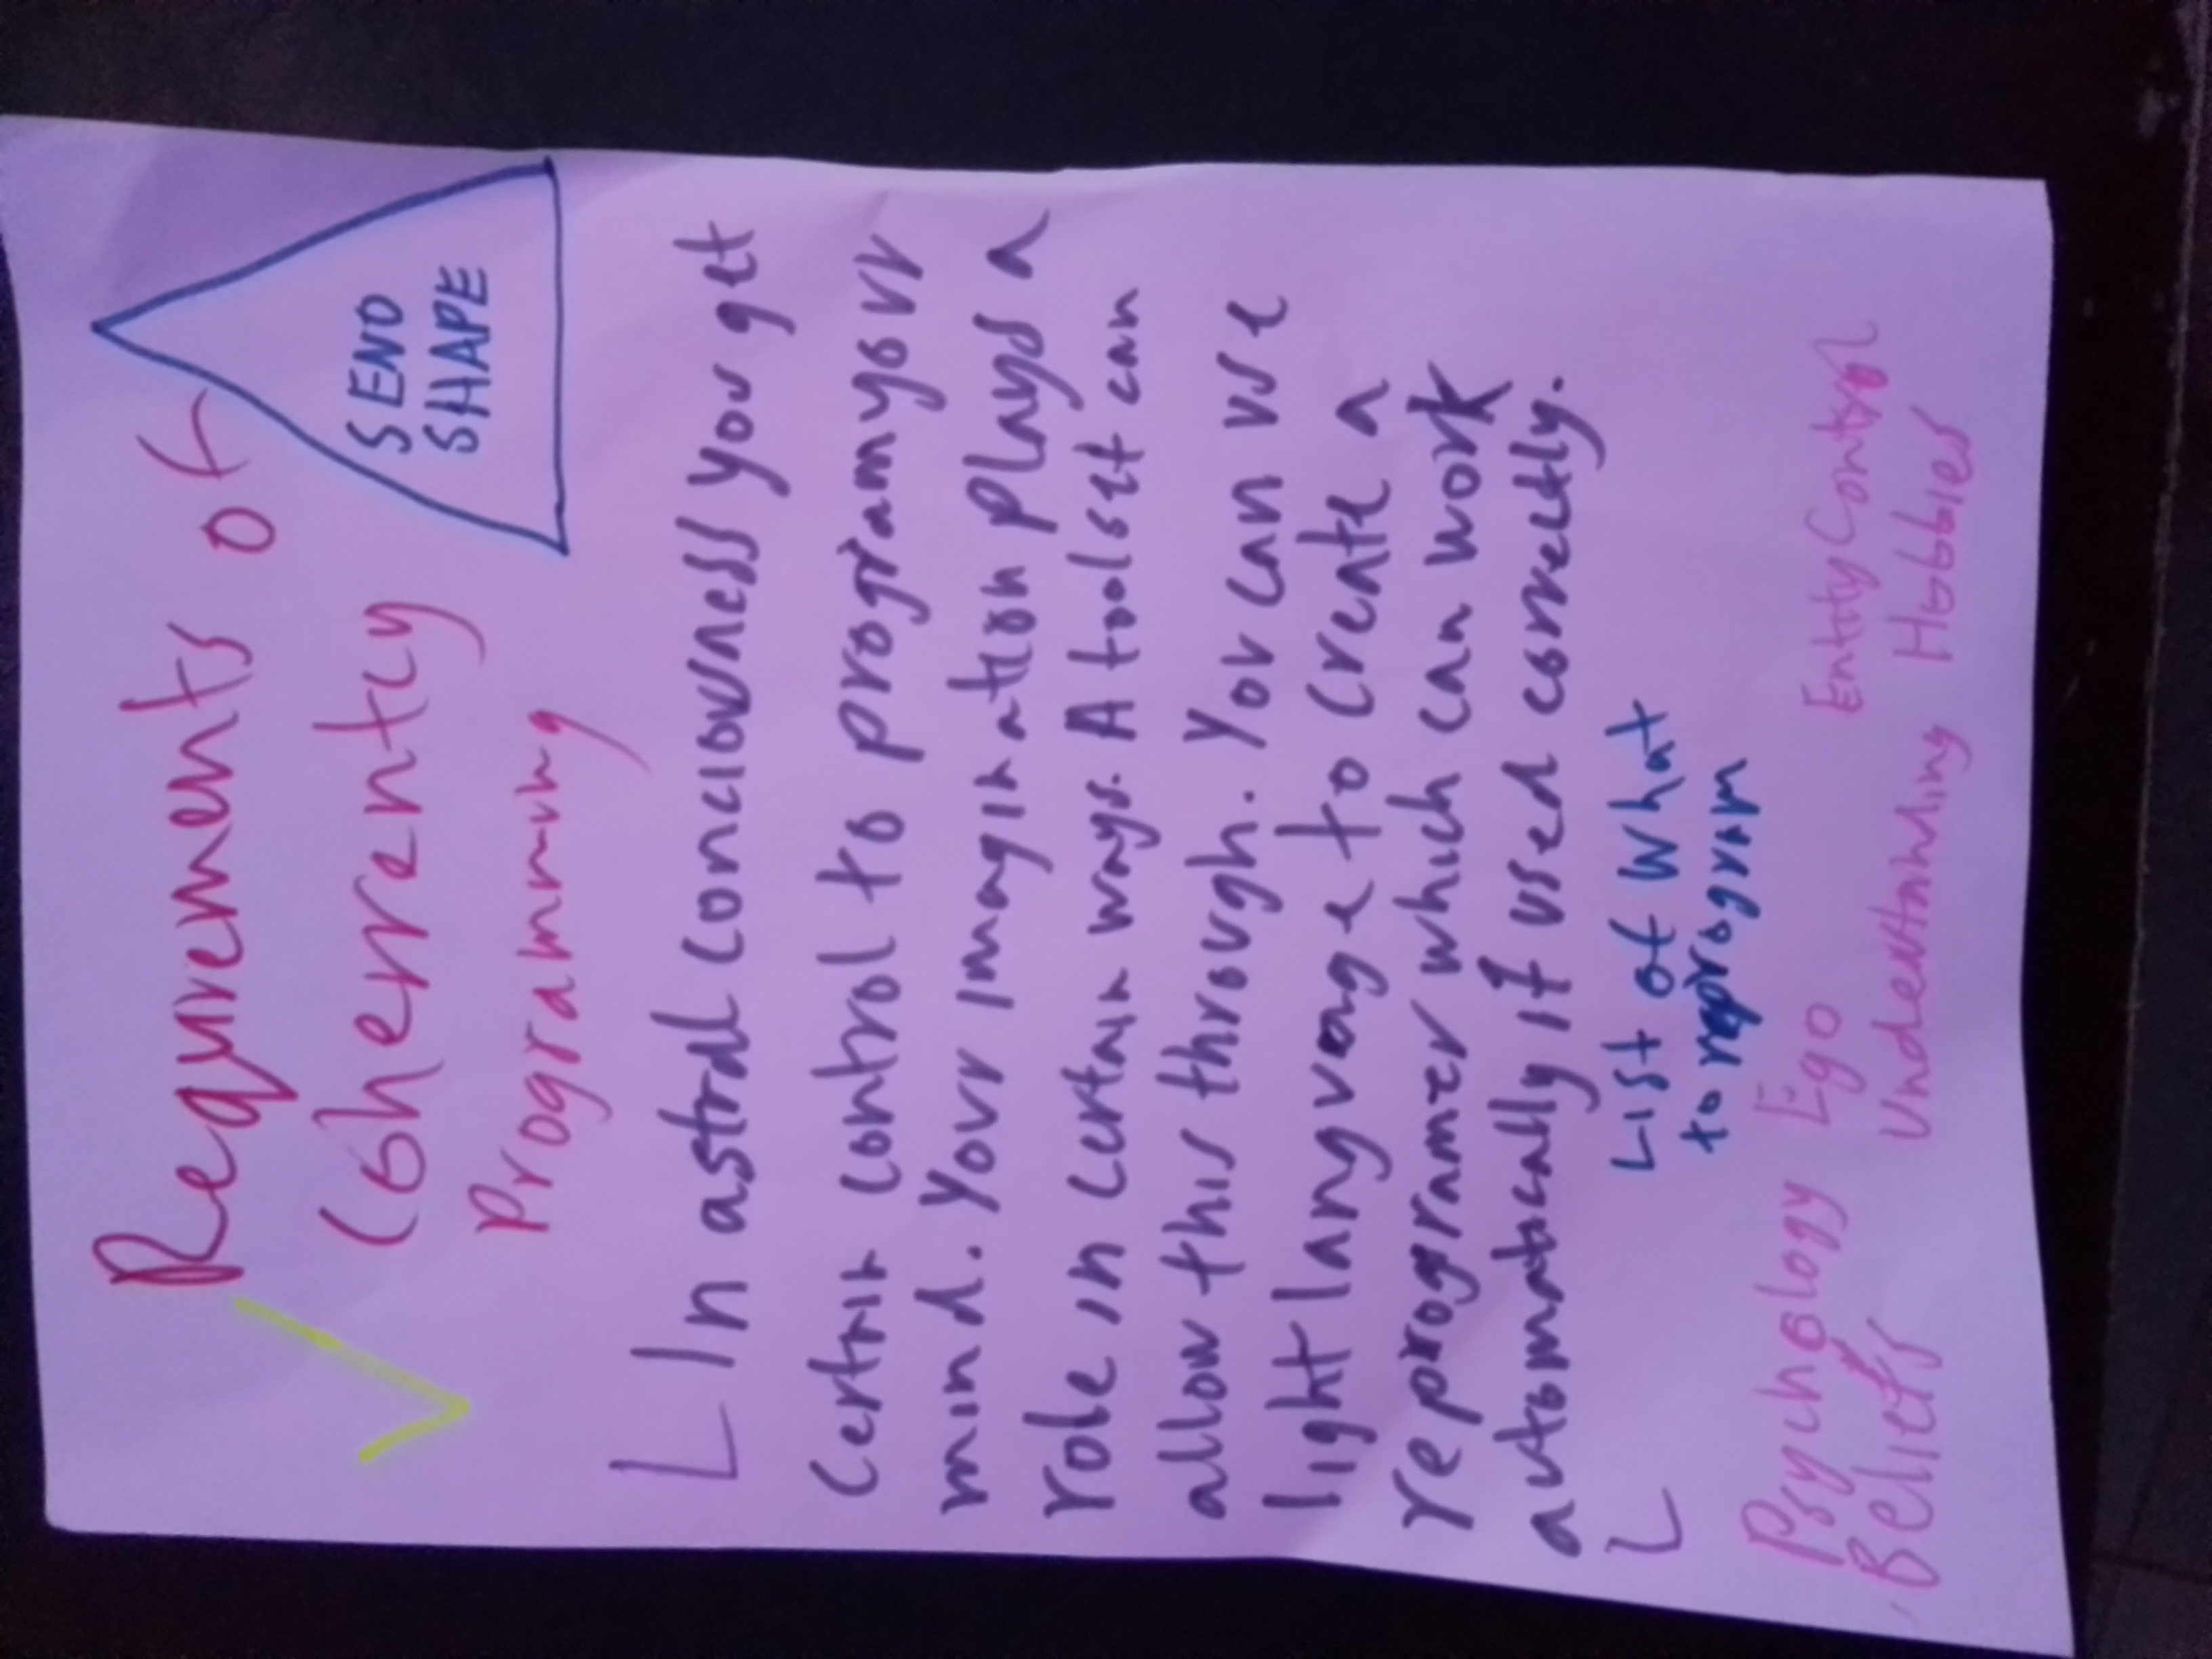 Requrements of
Coherentcy
Programming
SEND
SHAPE
In astral conciousness you get
certain control to program your
mind. Your imagination plays a
role in certain ways. A toolset can
allow this through. You can use
light language to create a
reprogramzer which can work
automatically if used correctly.
List of What
to reprogram
Psychology Ego Entity Control
Beliefs Understanding Hobbies